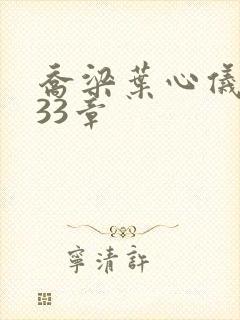 喬梁葉心儀
33章
寧清許